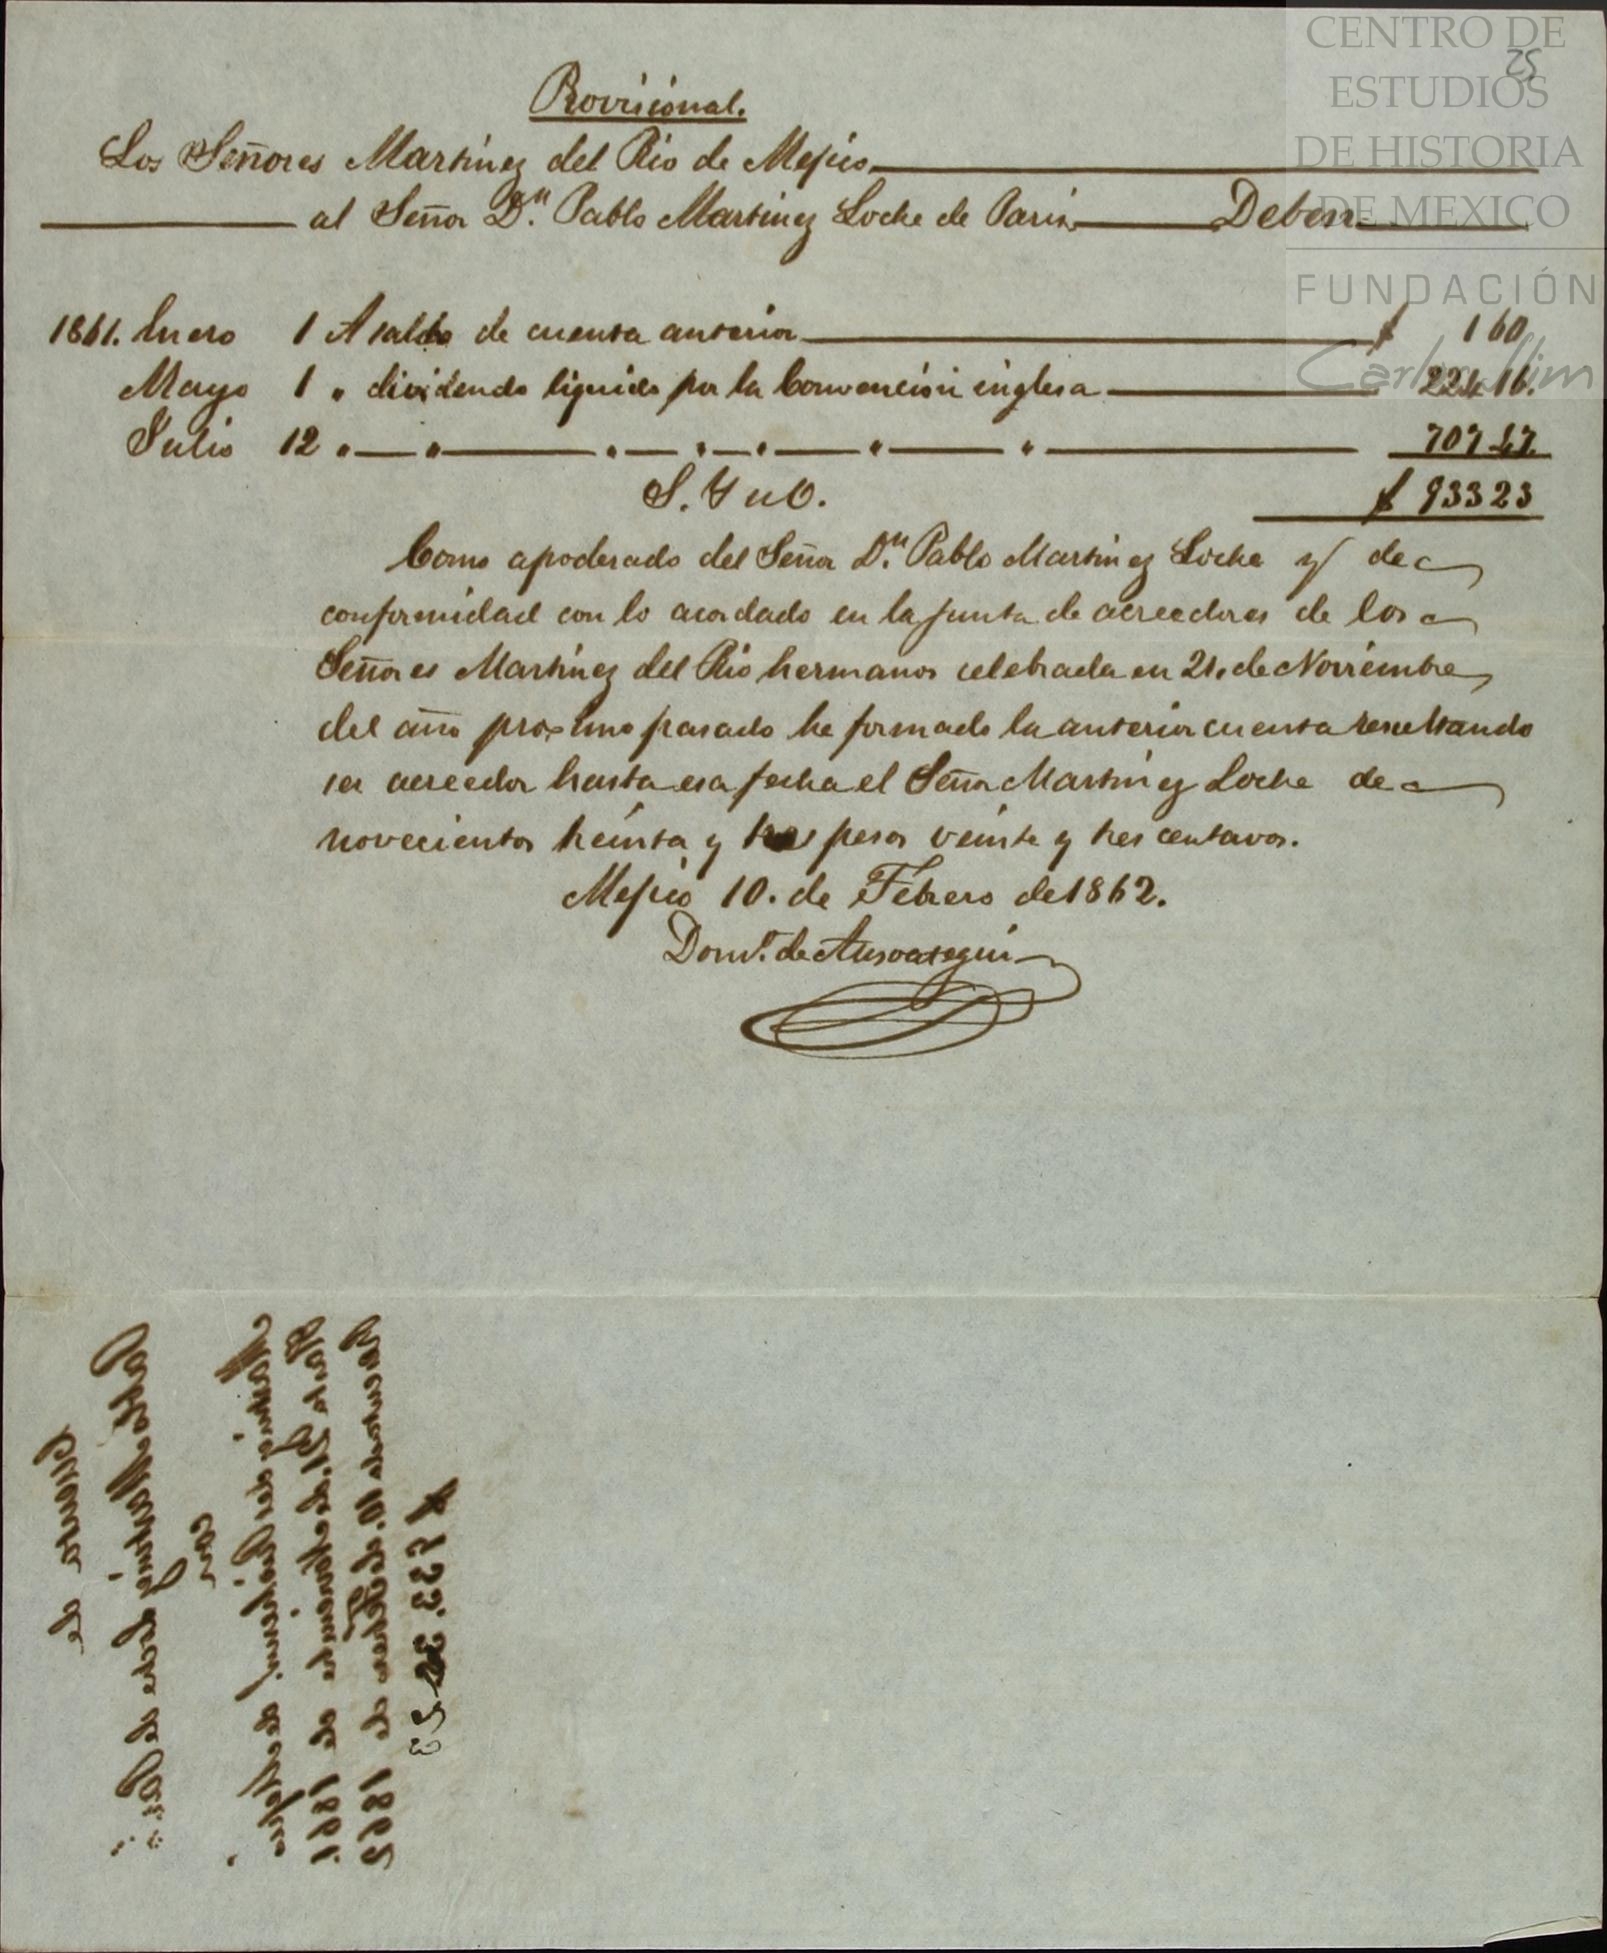 CENTRO DE
ESTUDIOS
DE HISTORIA
DE MEXICO
FUNDACIÓN
Carlos Slim
25
Provisional.
Los Señores Martinez del Rio de Mejico
al Señor Dn. Pablo Martinez Loche de Paris Deben
1861. Enero 1 A saldo de cuenta anterior $ 1 60
Mayo 1 " dividendo liquido por la Convencion inglesa 224 16.
Julio 12 " " " " " " " 707 47
S. Y u O. $ 933 23
Como apoderado del Señor Dn. Pablo Martinez Loche y de
conformidad con lo acordado en la junta de acreedores de los
Señores Martinez del Rio hermanos celebrada en 21. de Noviembre
del año proximo pasado he formado la anterior cuenta resultando
ser acreedor hasta esa fecha el Señor Martinez Loche de
novecientos treinta y tres pesos veinte y tres centavos.
Mejico 10. de Febrero de 1862.
Domo. de Ansoategui
Cuenta de
Pablo Martinez Loche de Paris
con
Martinez del Rio hermanos de Mejico
Hasta 21. de Noviembre de 1861.
Formada 10. de Febrero de 1862
$ 933. 23